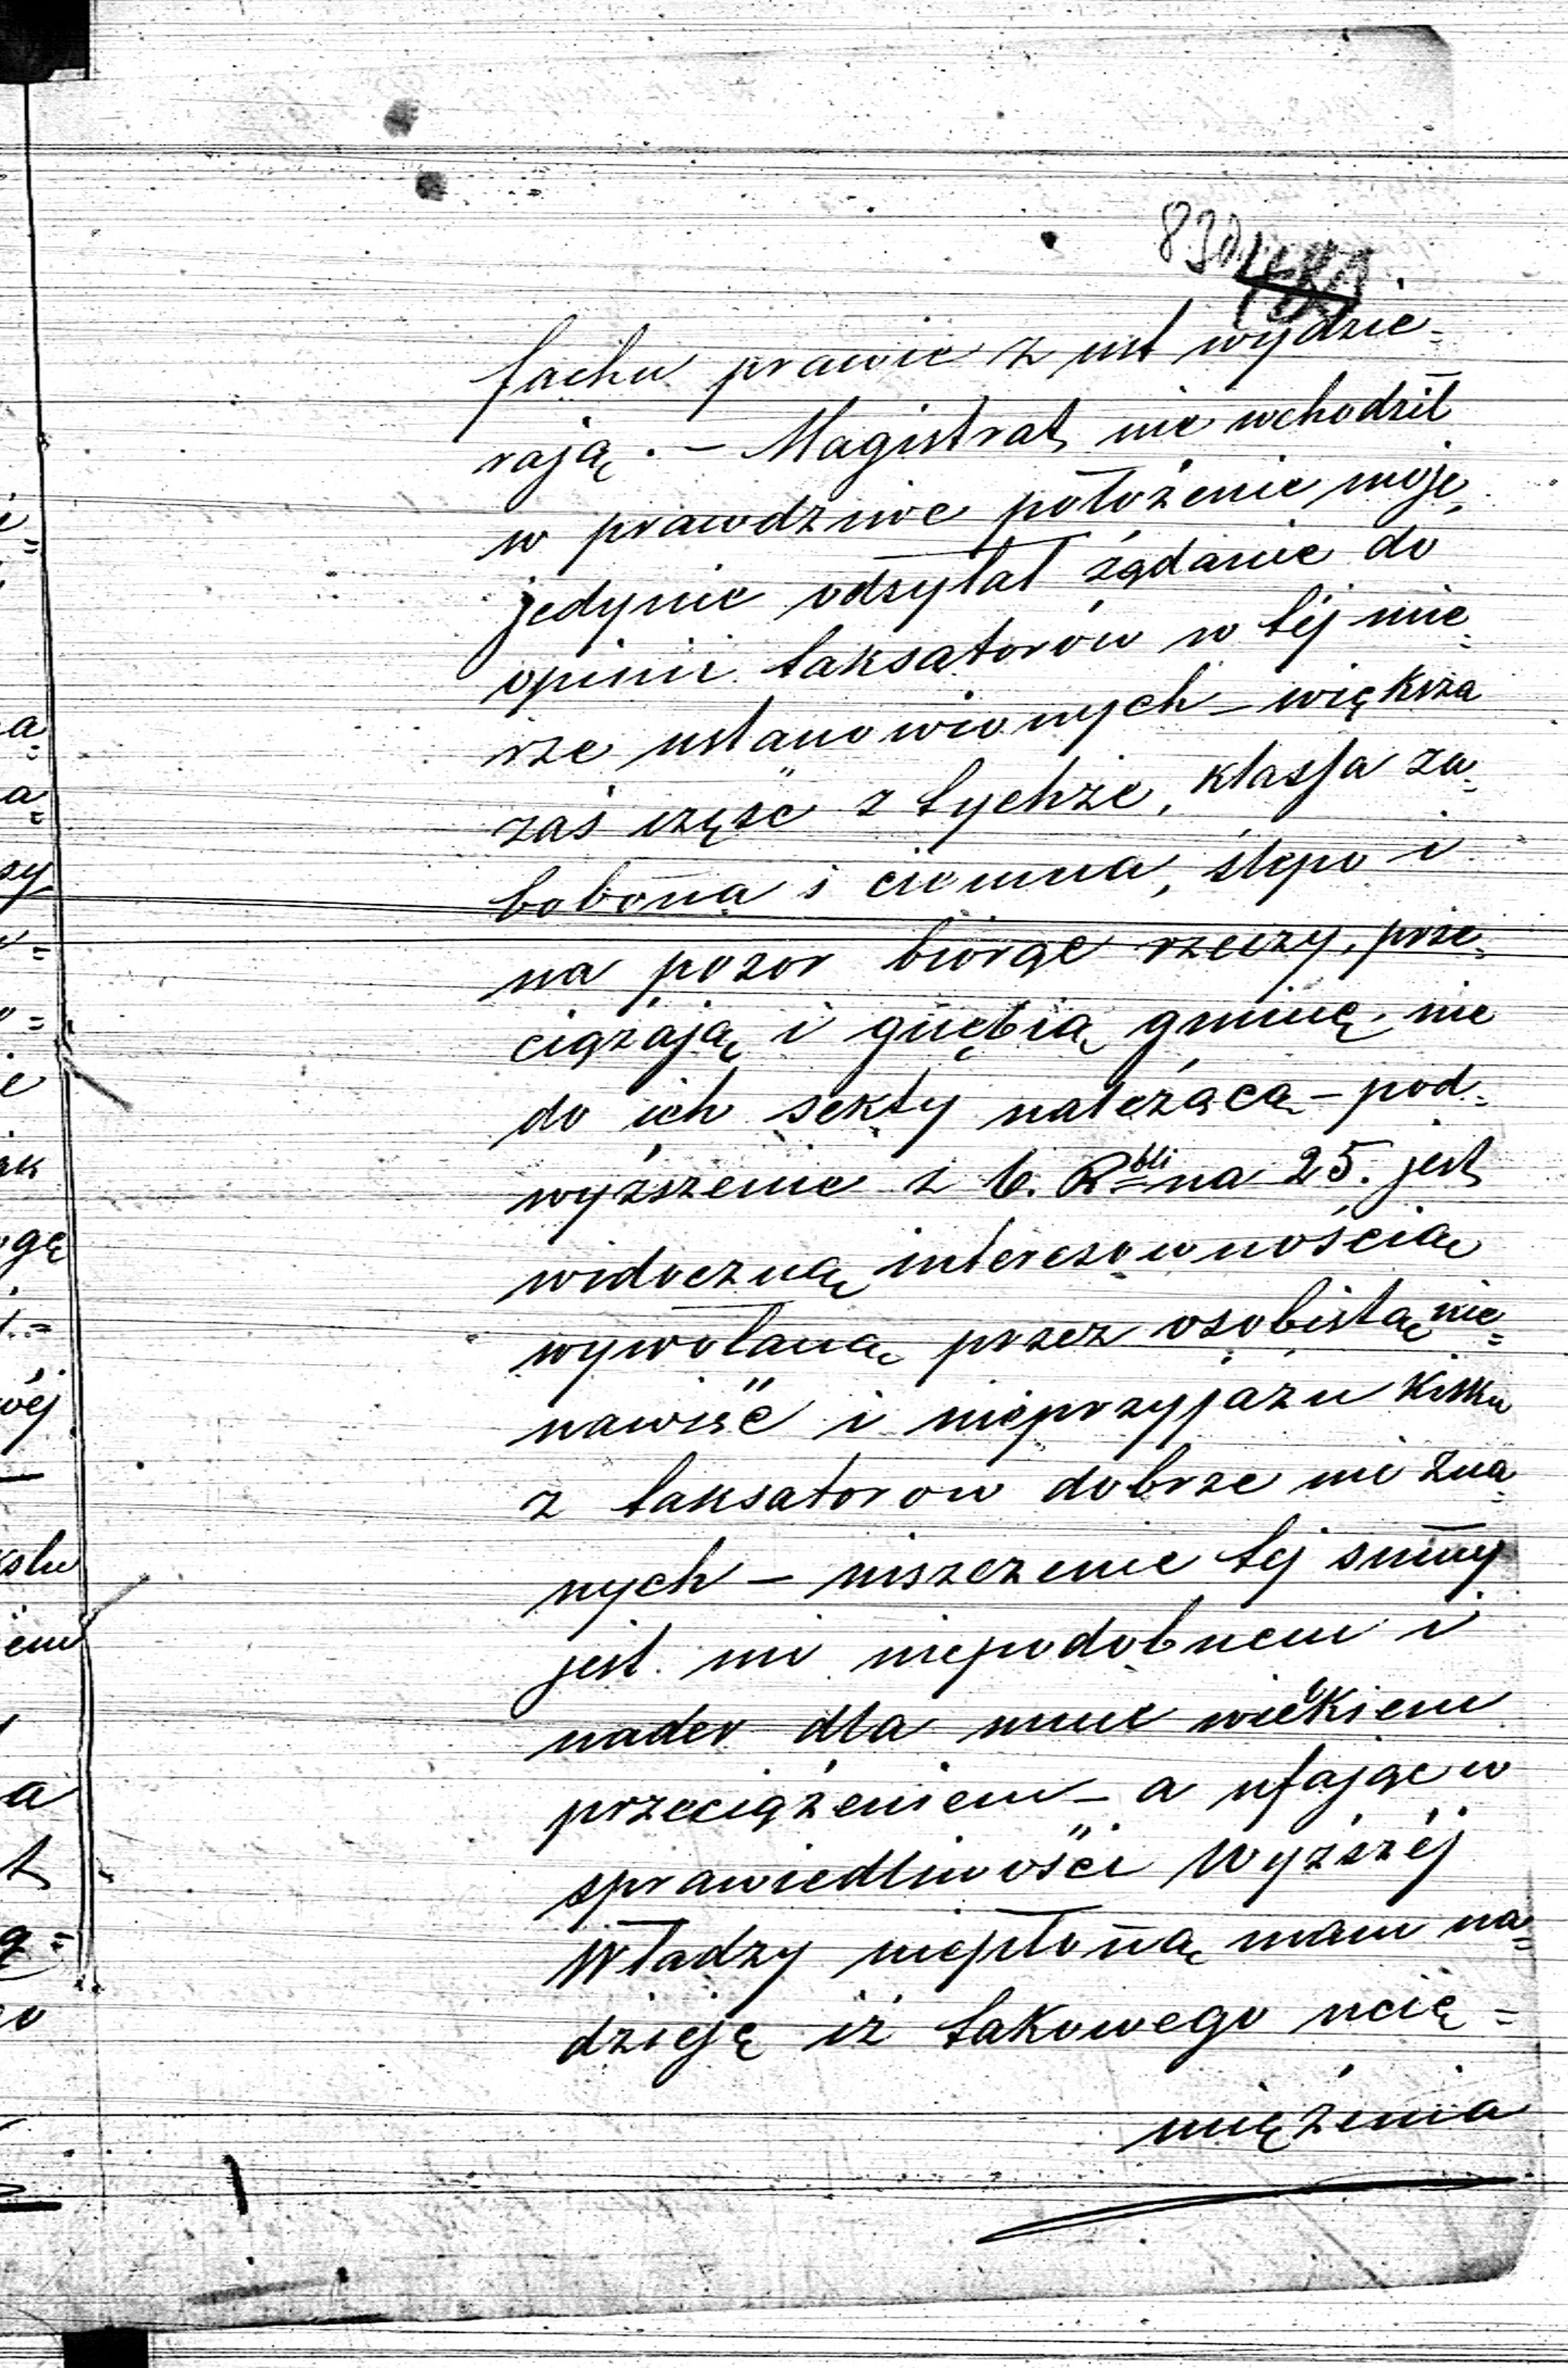 830
fachu prawie z ust wydzie=
rają. – Magistrat nie wchodził
w prawdziwe położenie moje,
jedynie odsyłał żądanie do
opinii taksatorów w téj mie=
rze ustanowionych – większa
zaś część z tychże, klassa za=
bobona i ciemna, ślepo i
na pozor biorąc rzeczy, prze=
ciążają i gnębią gminę nie
do ich sekty należącą – pod=
wyższenie z 6. Rbli na 25. jest
widoczną interesownością
wywołaną przez osobistą nie=
nawiść i nieprzyjaźń kilku
z taksatorow dobrze mi zna=
nych – niszczenie tej sumy
jest mi niepodobnem i
nader dla mnie wielkiem
przeciążeniem – a ufając w
sprawiedliwości Wyższéj
Władzy niepłoną mam na=
dzieję iż takowego ucię=
miężenia
a=
a=
sy
ak
ogę
wéj
a